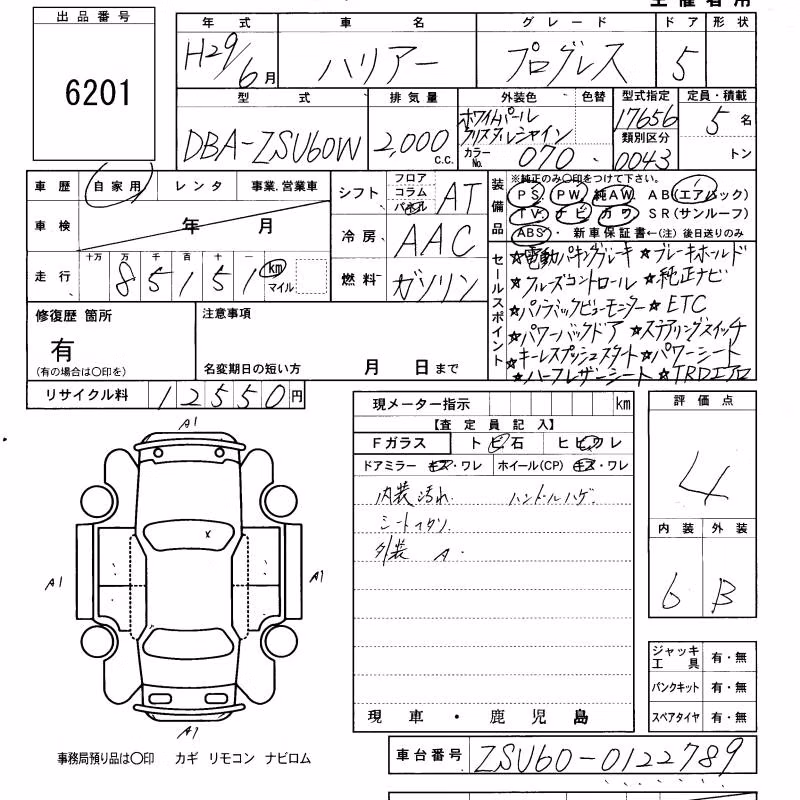 出品番号
6201
年式 車名 グレード ドア 形状
H29/6月 ハリアー プログレス 5
型式 排気量 外装色 色替 型式指定 定員・積載
DBA-ZSU60W 2,000 c.c. ホワイトパール クリスタルシャイン 17656 5名
類別区分
カラーNo. 070 0043 トン
車歴 自家用 レンタ 事業.営業車
シフト フロア コラム パネル AT
車検 年 月
冷房 AAC
走行 十万 万 千 百 十 一
85151 km マイル
燃料 ガソリン
装備品 ※純正のみ○印をつけて下さい。
PS. PW. 純AW. AB(エアバック)
TV. ナビ. カワ. SR(サンルーフ)
ABS. 新車保証書←(注)後日送りのみ
セールスポイント
☆電動パーキングブレーキ ☆ブレーキホールド
☆クルーズコントロール ☆純正ナビ
☆パノラミックビューモニター ☆ETC
☆パワーバックドア ☆ステアリングスイッチ
☆キーレスプッシュスタート ☆パワーシート
☆ハーフレザーシート ☆TRDエアロ
修復歴 箇所
有
(有の場合は○印を)
注意事項
名変期日の短い方 月 日まで
リサイクル料 12550円
現メーター指示 km
【査定員記入】
Fガラス トビ石 ヒビワレ
ドアミラー キズ・ワレ ホイール(CP) キズ・ワレ
内装汚れ. ハンドルハゲ.
シートヘタリ.
外装 A.
現車・鹿児島
評価点
4
内装 外装
6 B
ジャッキ工具 有・無
パンクキット 有・無
スペアタイヤ 有・無
A1
x
A1
A1
A1
事務局預り品は○印 カギ リモコン ナビロム
車台番号 ZSU60-0122789